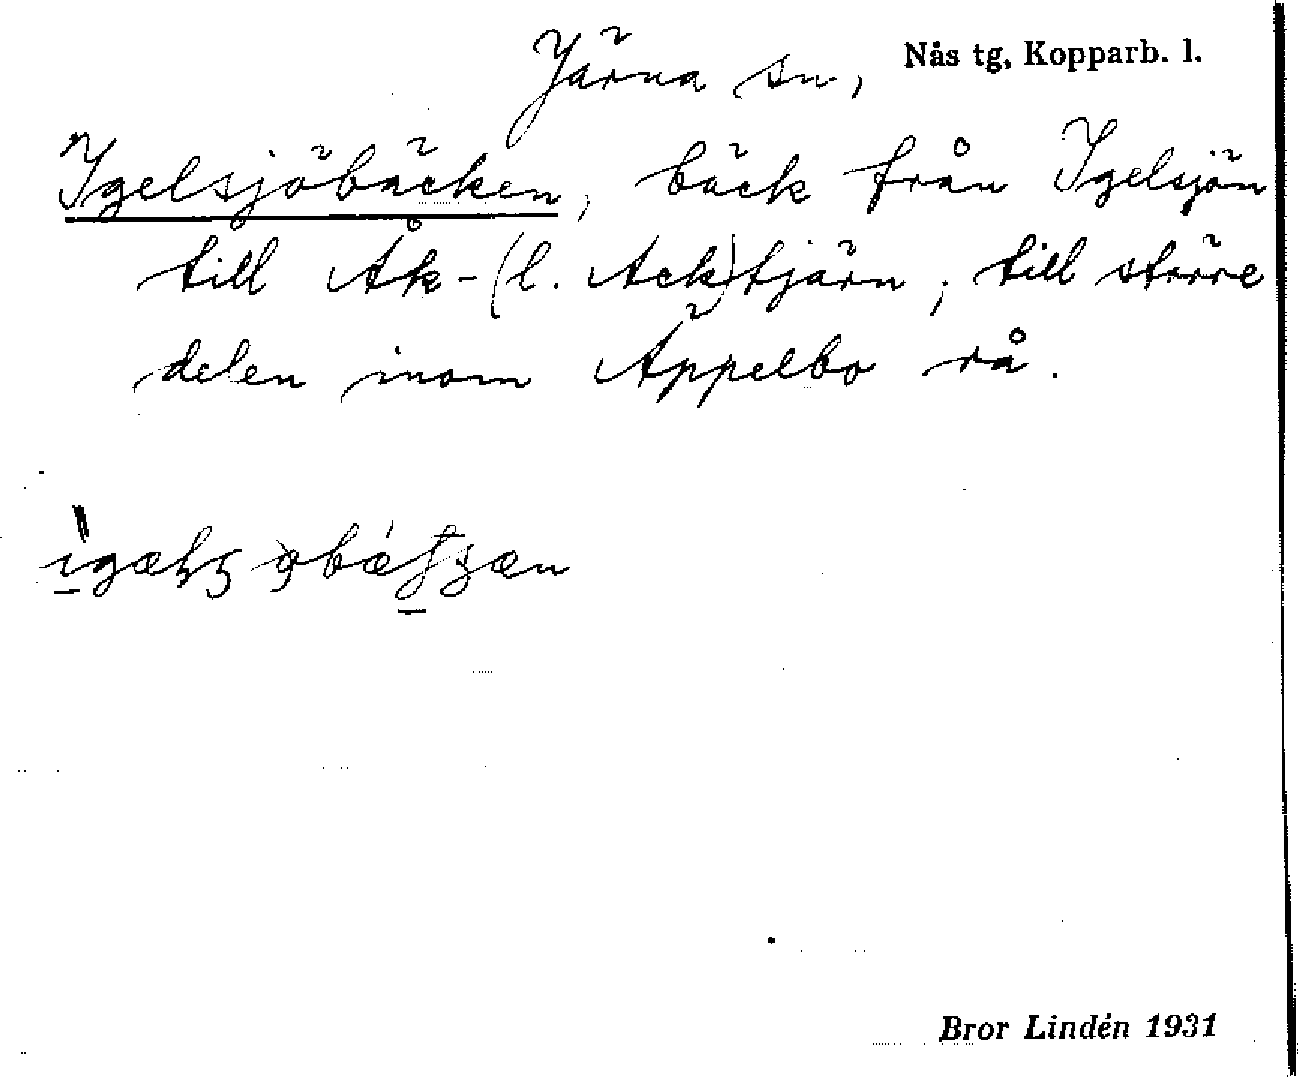 Järna sn, Nås tg, Kopparb. l.
Igelsjöbäcken, bäck från Igelsjön
till Åk-(l. Ack)tjärn, till större
delen inom Äppelbo rå.
Bror Lindén 1931